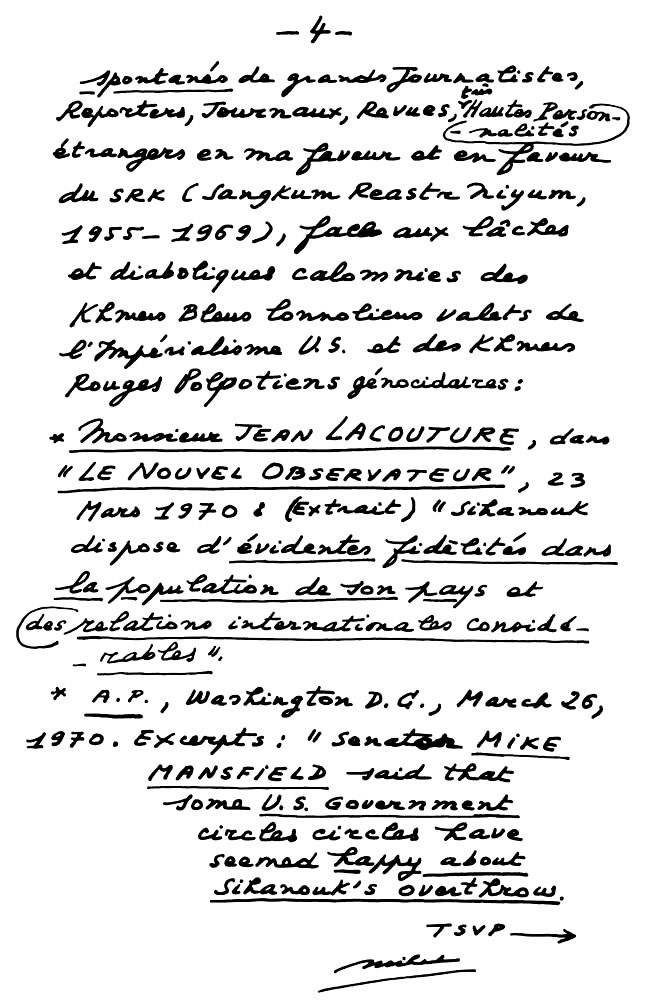 - 4 -
spontanés de grands Journalistes,
Reporters, Journaux, Revues, très Hautes Person-
- nalités
étrangers en ma faveur et en faveur
du SRK (Sangkum Reastr Niyum,
1955-1969), face aux lâches
et diaboliques calomnies des
Khmers Bleus lonnoliens valets de
l'Impérialisme U.S. et des Khmers
Rouges Polpotiens génocidaires :
* Monsieur JEAN LACOUTURE, dans
"LE NOUVEL OBSERVATEUR", 23
Mars 1970 : (Extrait) "Sihanouk
dispose d'évidentes fidélités dans
la population de son pays et
des relations internationales considé-
- rables".
* A.P., Washington D.C., March 26,
1970. Excerpts : "Senator MIKE
MANSFIELD said that
some U.S. Government
circles circles have
seemed happy about
Sihanouk's overthrow.
TSVP →